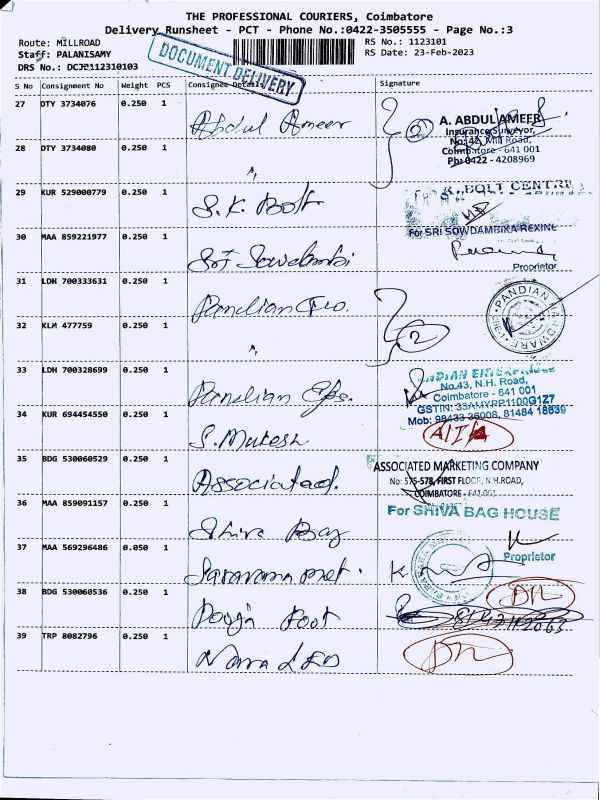 THE PROFESSIONAL COURIERS, Coimbatore
Delivery Runsheet - PCT - Phone No.:0422-3505555 - Page No.:3
Route: MILLROAD
RS No.: 1123101
Staff: PALANISAMY
RS Date: 23-Feb-2023
DRS No.: DCJP112310103
DOCUMENT DELIVERY
S No Consignment No Weight PCS Consignee Details Signature
27 DTY 3734076 0.250 1 Abdul Ameer
2
A. ABDUL AMEER
Insurance Surveyor,
No: 42, Mill Road,
Coimbatore - 641 001
Ph: 0422 - 4208969
28 DTY 3734080 0.250 1 "
29 KUR 529000779 0.250 1 S.K. Bolt
K. BOLT CENTRE
30 MAA 859221977 0.250 1 Sri Sowdambi
For SRI SOWDAMBIKA REXINE
Proprietor
31 LDH 700333631 0.250 1 Pandian
PANDIAN HARDWARE
32 KLM 477759 0.250 1 "
2
33 LDH 700328699 0.250 1 Pandian Eps.
PANDIAN ENTERPRISES
No.43, N.H. Road,
Coimbatore - 641 001
GSTIN: 33AHYPP1100G1Z7
Mob: 98433 36008, 81484 18639
34 KUR 694454550 0.250 1 S. Mukesh
35 BDG 530060529 0.250 1 Associated.
ASSOCIATED MARKETING COMPANY
No: 575-578, FIRST FLOOR, N.H.ROAD,
COIMBATORE - 641 001
36 MAA 859091157 0.250 1 Shiva Bag
For SHIVA BAG HOUSE
Proprietor
37 MAA 569296486 0.050 1 Saravana met.
38 BDG 530060536 0.250 1 Pooja Foot
39 TRP 8082796 0.250 1